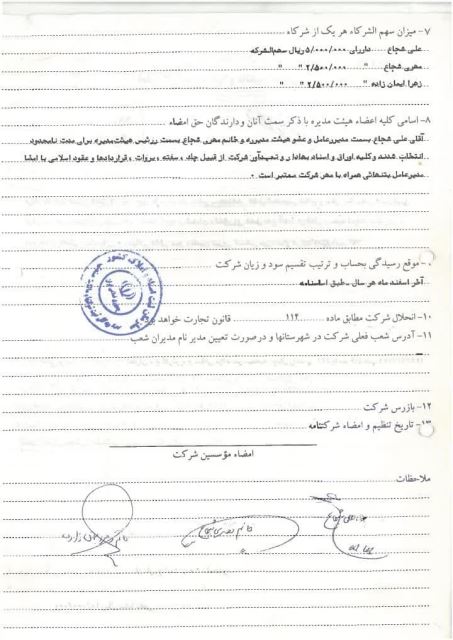 ۷- میزان سهم الشرکاء هر یک از شرکاء
علی شجاع دارای ۵/۰۰۰/۰۰۰ ریال سهم‌الشرکه
مهری شجاع " ۲/۵۰۰/۰۰۰ " "
زهرا ایمان زاده " ۲/۵۰۰/۰۰۰ " "
۸- اسامی کلیه اعضاء هیئت مدیره با ذکر سمت آنان و دارندگان حق امضاء
آقای علی شجاع بسمت مدیرعامل و عضو هیئت مدیره و خانم مهری شجاع بسمت رئیس هیئت‌مدیره برای مدت نامحدود
انتخاب شدند و کلیه اوراق و اسناد بهادار و تعهدآور شرکت از قبیل چک، سفته، بروات، قراردادها و عقود اسلامی با امضا
مدیرعامل بتنهائی همراه با مهر شرکت معتبر است.
موقع رسیدگی بحساب و ترتیب تقسیم سود و زیان شرکت
آخر اسفند ماه هر سال - طبق اساسنامه
۱۰- انحلال شرکت مطابق ماده ۱۱۴ قانون تجارت خواهد
۱۱- آدرس شعب فعلی شرکت در شهرستانها و درصورت تعیین مدیر نام مدیران شعب
-
۱۲- بازرس شرکت
۱۳- تاریخ تنظیم و امضاء شرکتنامه
امضاء مؤسسین شرکت
ملاحظات
خانم مهری شجاع